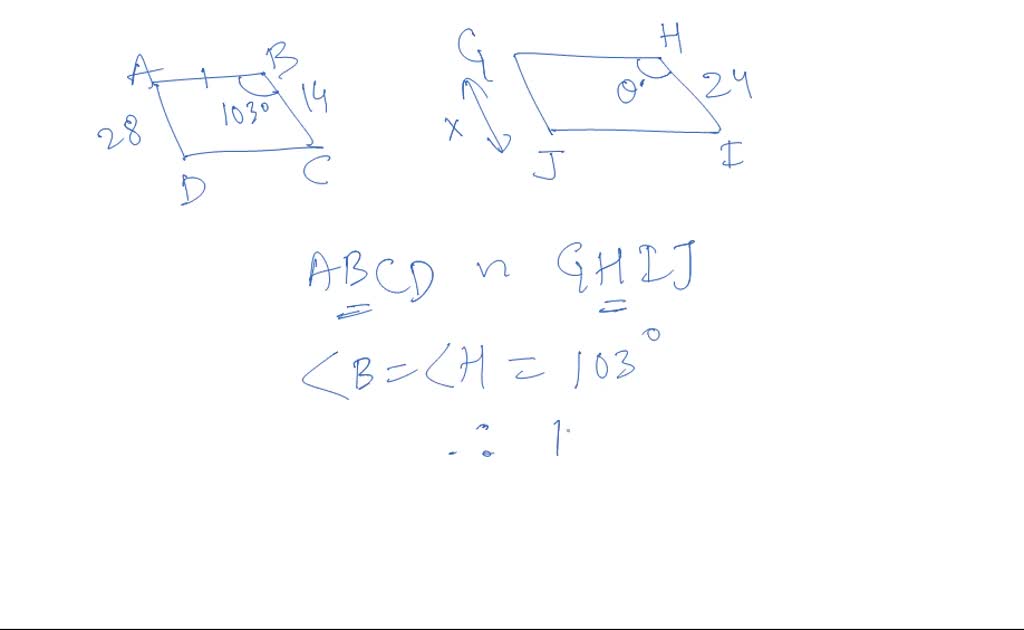 A B
103°
14
28
D C
G H
θ
24
x
J I
ABCD ~ GHIJ
<B = <H = 103°
∴ 1